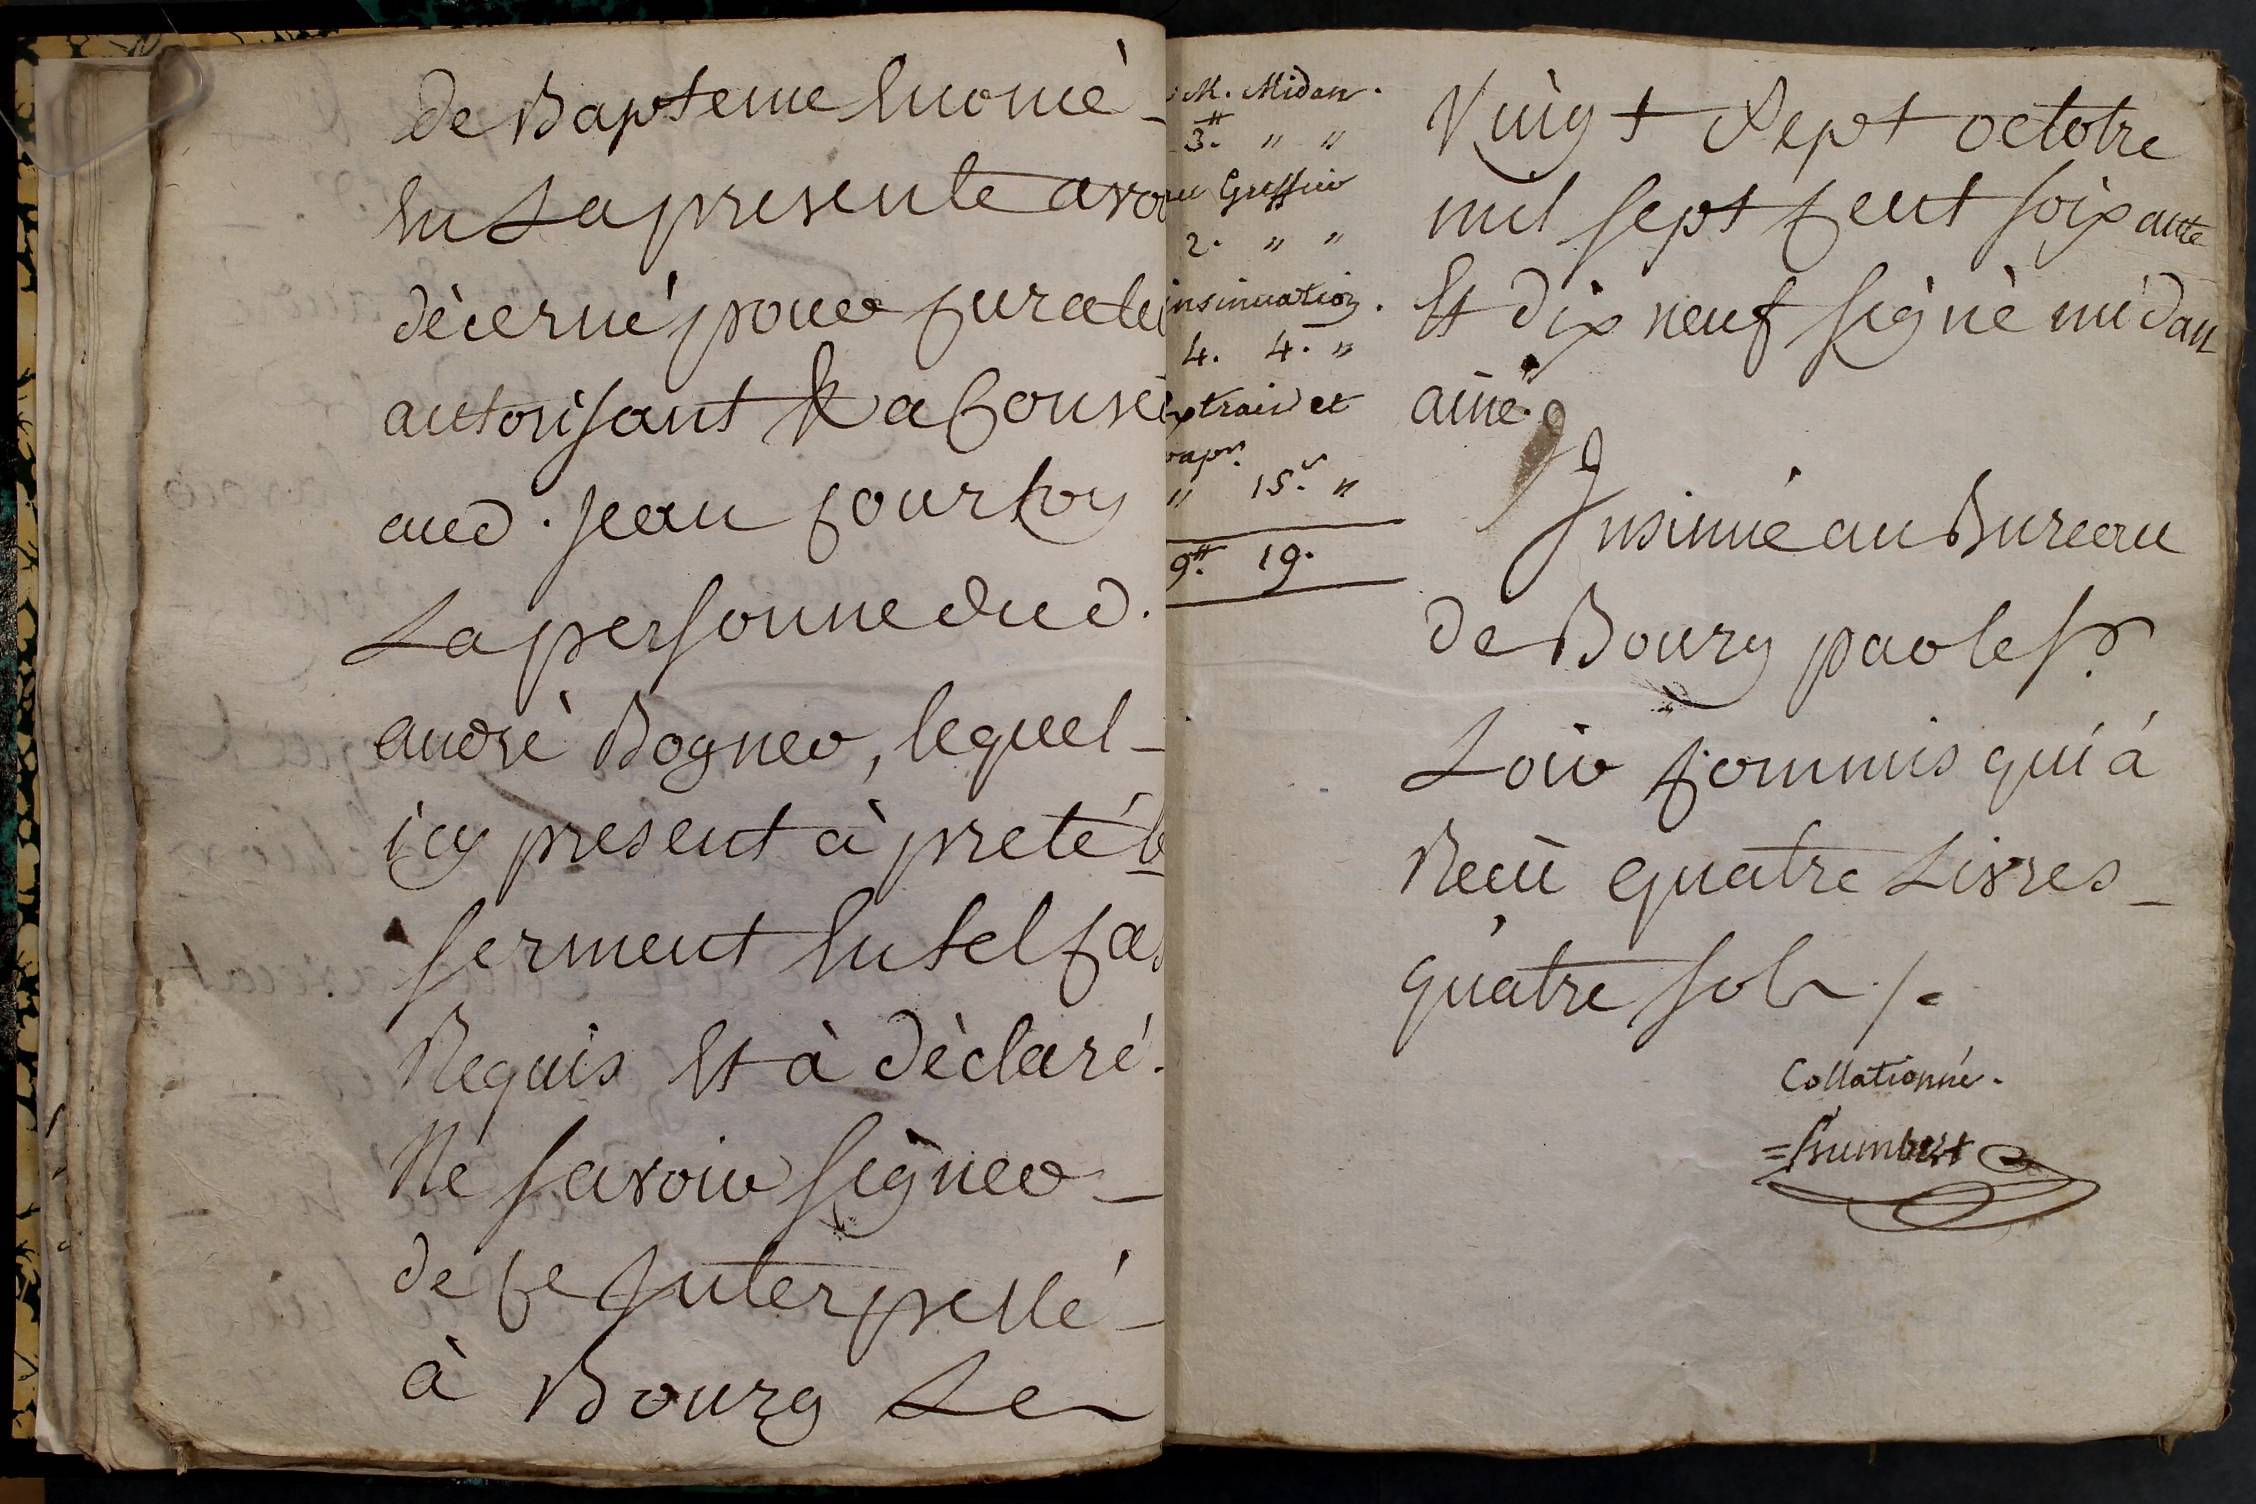 de Bapteme Enoncé
En La presente avo
décerné pour Curate
autorisant & a Consei
aud. Jean Courtoy
La personne dud.
andré Bogner, lequel
icy present à preté le
serment En tel Cas
Requis Et à déclaré.
Ne savoir signer
de Ce Interpellé
à Bourg Le
M. Midan.
3.# " "
au Greffier
2. " "
insinuation.
4. 4. "
xtrait et
papr.
" 15.s "
9.# 19.
Vingt Sept octobre
mil sept Cent soixante
Et dix neuf signé midan
ainé.
Insinué au Bureau
de Bourg par le Sr.
Loir Commis qui à
Reçu quatre Livres
quatre sols /.
Collationné.
=humbert